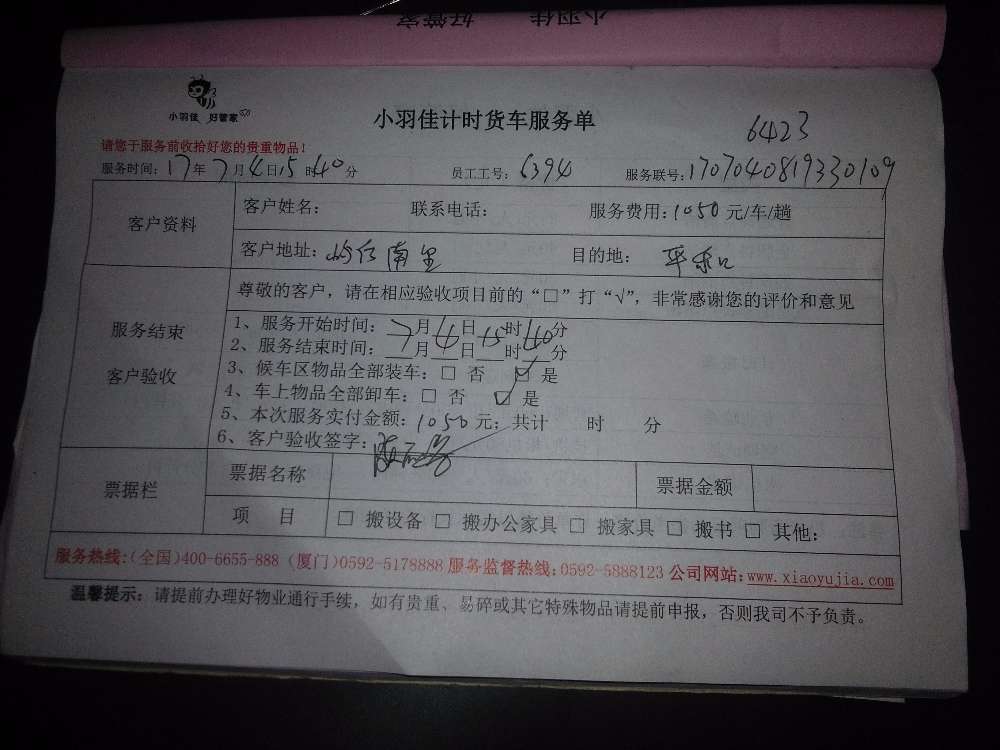 小羽佳 好管家
小羽佳 好管家
小羽佳计时货车服务单
6423
请您于服务前收拾好您的贵重物品！
服务时间：17年7月4日15时40分 员工工号：6394 服务联号：1707040819330109
客户资料
客户姓名： 联系电话： 服务费用：1050元/车/趟
客户地址：南里 目的地：平和
服务结束
客户验收
尊敬的客户，请在相应验收项目前的“□”打“√”，非常感谢您的评价和意见
1、服务开始时间：7月4日15时40分
2、服务结束时间： 月 日 时 分
3、候车区物品全部装车：□ 否 ☑ 是
4、车上物品全部卸车：□ 否 ☑ 是
5、本次服务实付金额：1050元；共计 时 分
6、客户验收签字：
票据栏
票据名称 票据金额
项 目 □ 搬设备 □ 搬办公家具 □ 搬家具 □ 搬书 □ 其他：
服务热线：(全国)400-6655-888 (厦门)0592-5178888 服务监督热线：0592-5888123 公司网站：www.xiaoyujia.com
温馨提示：请提前办理好物业通行手续，如有贵重、易碎或其它特殊物品请提前申报，否则我司不予负责。